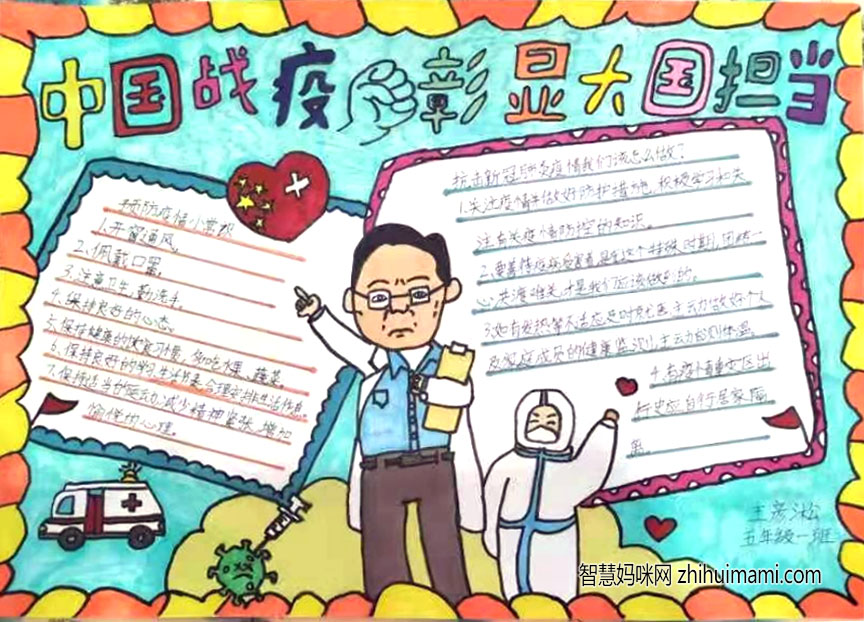 中国战疫彰显大国担当
预防疫情小常识
1.开窗通风。
2.佩戴口罩。
3.注意卫生,勤洗手。
4.保持良好的心态。
5.保持健康的饮食习惯,多吃水果、蔬菜。
6.保持良好的学习生活节奏合理安排生活作息
7.保持适当的运动,减少精神紧张,增加
愉悦的心理。
抗击新冠肺炎疫情我们该怎么做?
1.关注疫情并做好防护措施,积极学习和关
注有关疫情防控的知识。
2.要善待疫病受害者,是在这个特殊时期,团结一
心,共渡难关,才是我们应该做到的。
3.如有发热等不适应及时就医,主动做好个人
及家庭成员的健康监测,主动自测体温。
4.有疫情重灾区出
行史应自行居家隔
离。
王彦淞
五年级一班
智慧妈咪网 zhihuimami.com